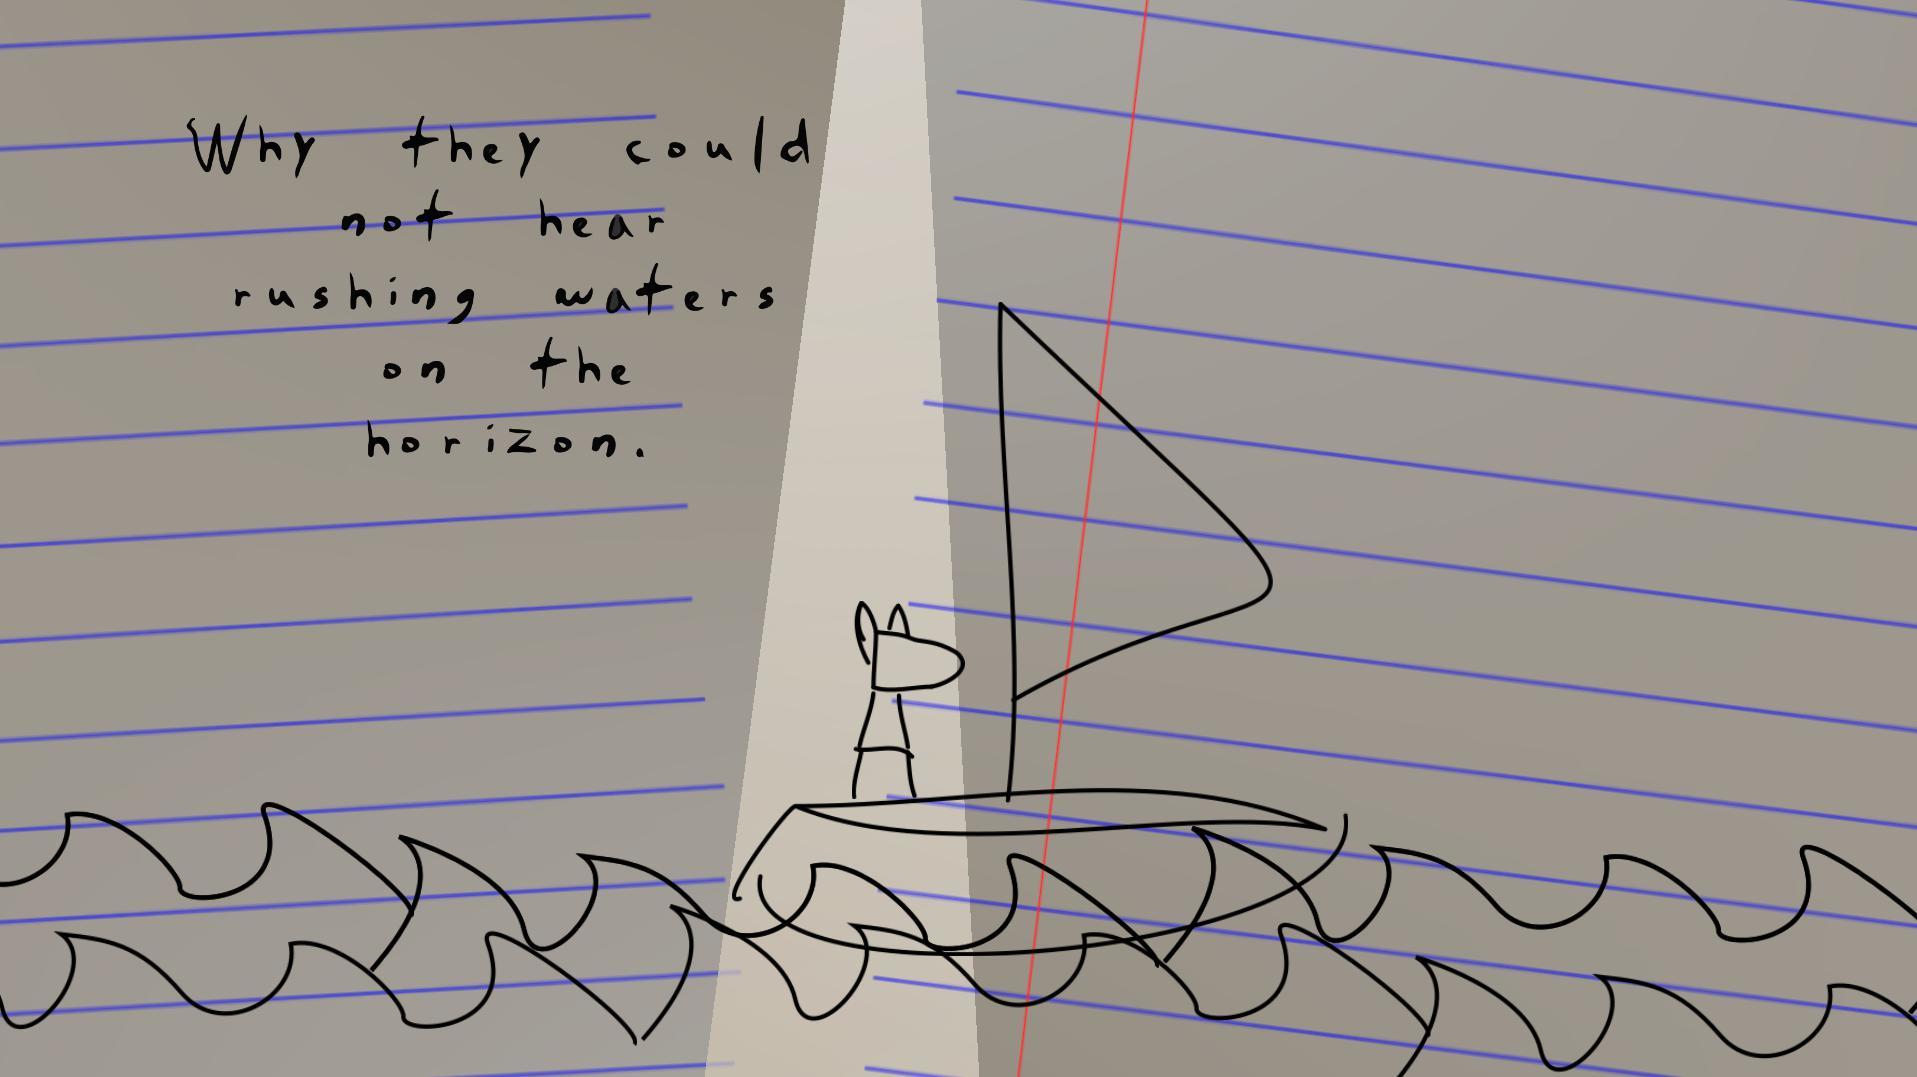 Why they could
not hear
rushing waters
on the
horizon.